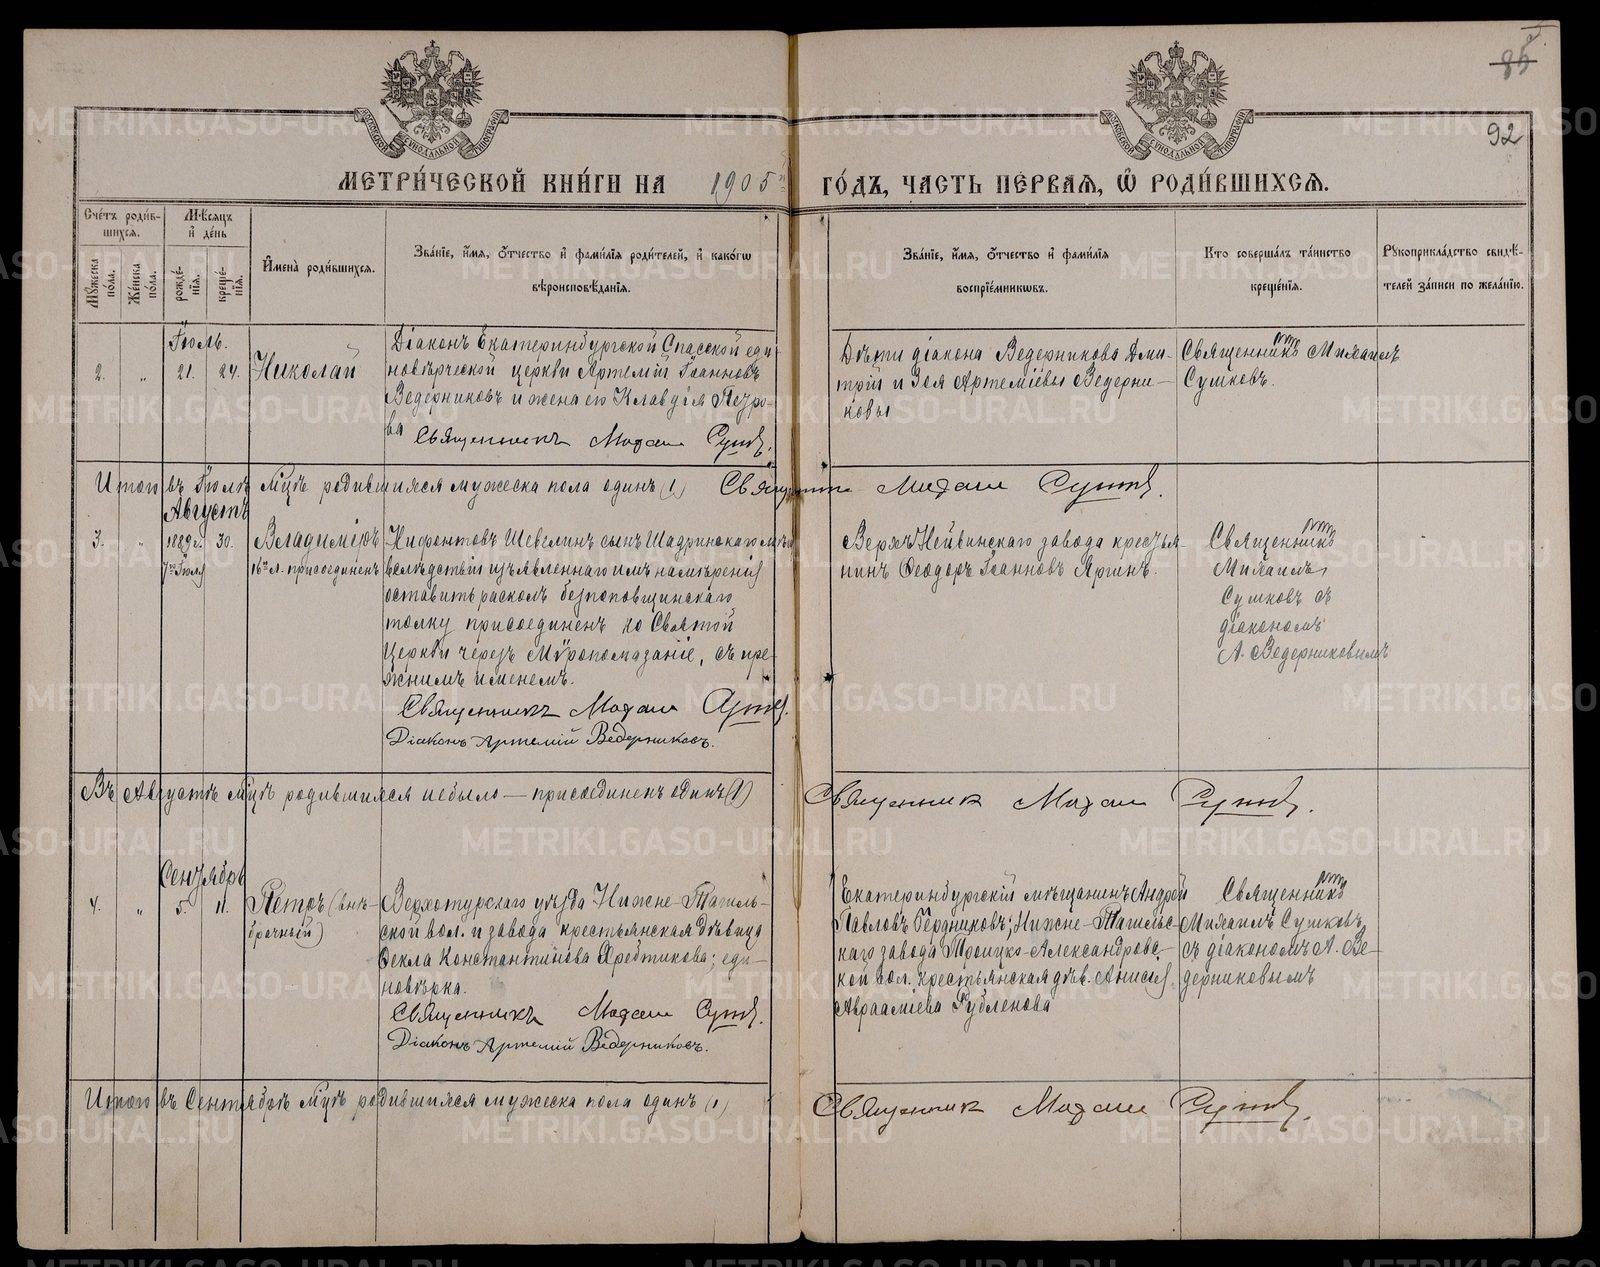 85
92
МЕТРИ́ЧЕСКОЙ КНИ́ГИ НА 1905 ГО́ДЪ, ЧАСТЬ ПЕ́РВАЯ, Ѡ РОДИ́ВШИХСЯ.
Сче́тъ роди́в-
шихся.
Му́жеска по́ла.
Же́нска по́ла.
Мѣ́сяцъ и҆ де́нь
рожде́-
нїя.
креще́-
нїя.
И҆мена̀ роди́вшихся.
Зва́нїе, и҆́мя, ѻ҆́тчество и҆ фами́лїя роди́телей, и҆ како́гѡ
вѣроисповѣ́данїя.
Зва́нїе, и҆́мя, ѻ҆́тчество и҆ фами́лїя
воспрїе́мникѡвъ.
Кто̀ соверша́лъ та́инство
креще́нїя.
Рꙋкоприкла́дство свидѣ́-
телей за́писи по жела́нїю.
Іюль.
2. " 21. 24. Николай
Діаконъ Екатеринбургской Спасской еди-
новѣрческой церкви Артемій Іоанновъ
Ведерниковъ и жена его Клавдія Петро-
ва
Священникъ Михаил Сушков.
Дѣти діакона Ведерникова Дми-
трій и Зоя Артеміевы Ведерни-
ковы
Священникъ Михаилъ
Сушковъ.
Итого въ Іюлѣ мцѣ родившихся мужеска пола одинъ (1) Священник Михаил Сушков.
Августъ
3. " 1889 г. 30. Владиміръ
7го Іюля
16ти л. присоединенъ
Нифонтовъ Шевелинъ сынъ Шадринскаго
вслѣдствіи изъявленнаго имъ намѣренія
оставить расколъ безпоповщинскаго
толку присоединенъ ко Святой
Церкви черезъ Мѵропомазаніе, съ пре-
жнимъ именемъ.
Священникъ Михаил Сушков.
Діаконъ Артемій Ведерниковъ.
Верхъ Нейвинскаго завода крестья-
нинъ Ѳеодоръ Іоанновъ Яринъ.
Священникъ
Михаилъ
Сушковъ съ
діакономъ
А. Ведерниковымъ
Въ Августѣ мцѣ родившихся небыло — присоединенъ одинъ (1) Священник Михаил Сушков.
Сентябрь
4. " 5. 11. Петръ (внѣ-
брачный)
Верхотурскаго уѣзда Нижне-Тагиль-
ской вол. и завода крестьянская дѣвица
Ѳекла Константинова Хребтикова; еди-
новѣрка.
Священникъ Михаил Сушков.
Діаконъ Артемій Ведерниковъ.
Екатеринбургскій мѣщанинъ Андрей
Павловъ Бердниковъ; Нижне-Тагильс-
каго завода Троицко-Александровс-
кой вол. крестьянская дѣв. Анисія
Авраамiева Губленова
Священникъ
Михаилъ Сушковъ
съ діакономъ А. Ве-
дерниковымъ
Итого въ Сентябрѣ мцѣ родившихся мужеска пола одинъ (1) Священник Михаил Сушков.
METRIKI.GASO-URAL.RU